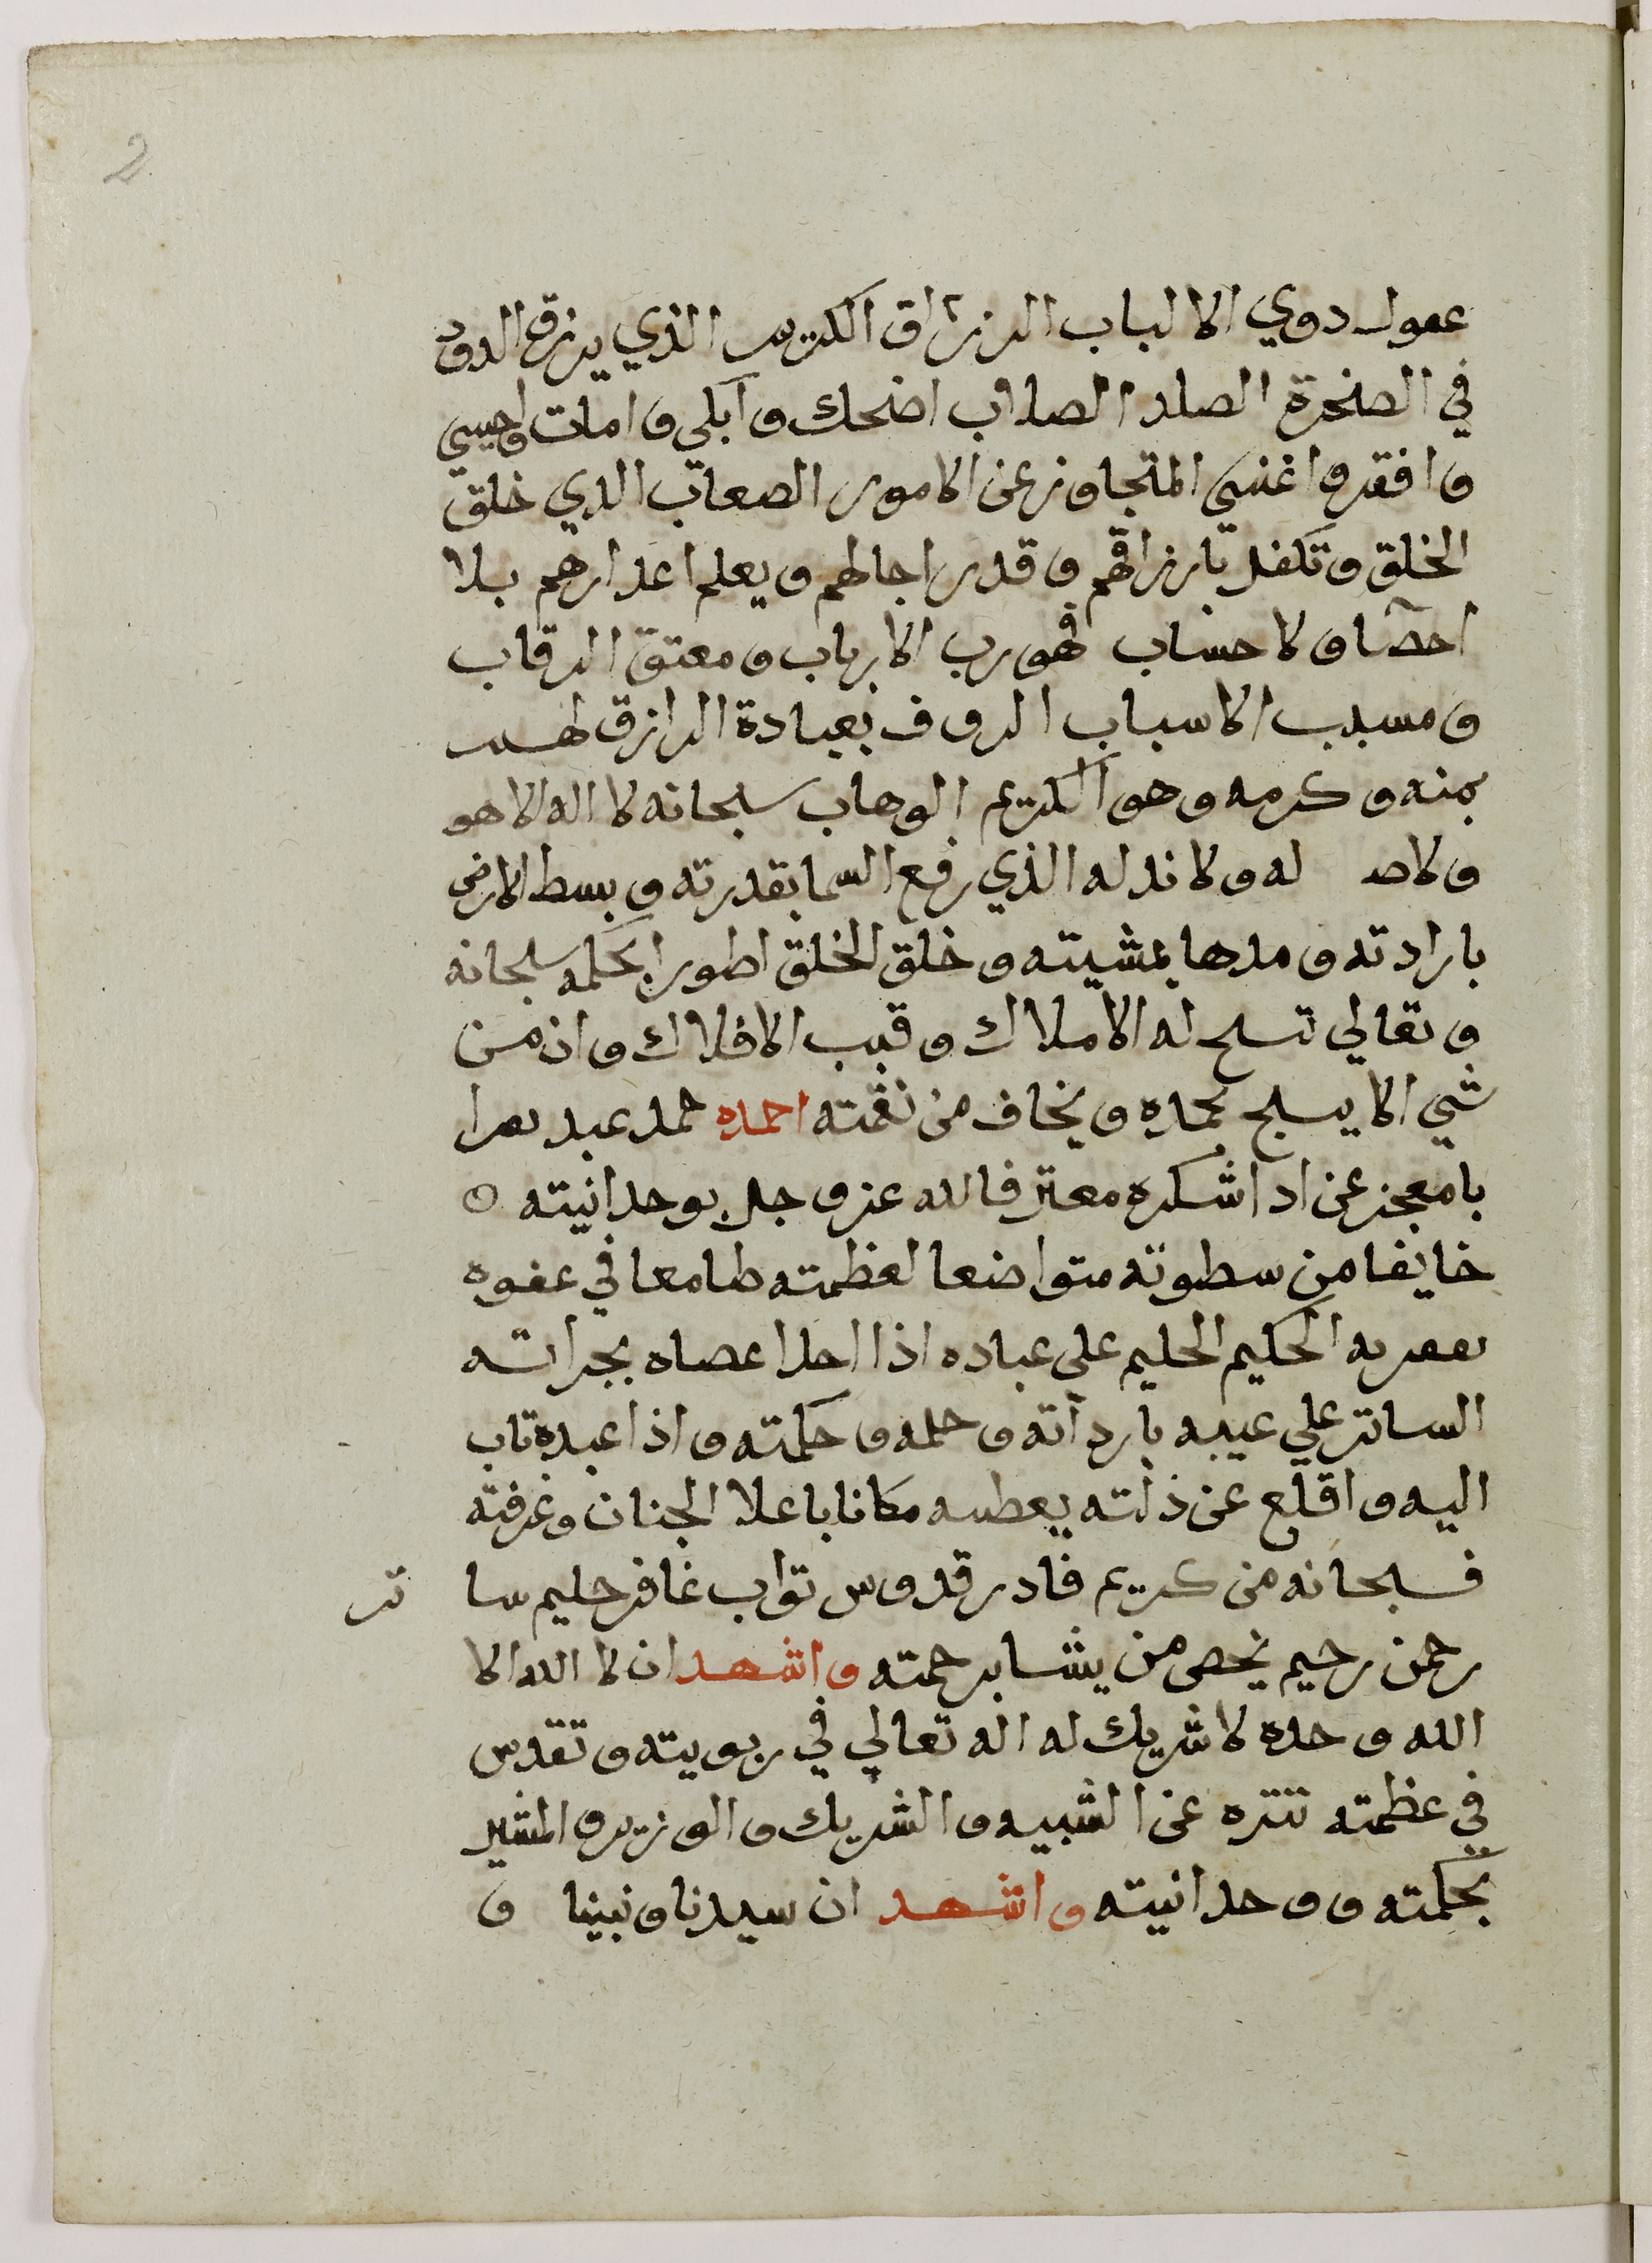 2
عقول دوي الالباب الرزاق الكريم الذي يرزق الدود
في الصخرة الصلد الصلاب اضحك وابكي وامات واحيي
وافقر واغني المتجاوز عن الامور الصعاب الدي خلق
الخلق وتكفل بارزاقهم وقدر اجالهم ويعلم اعدارهم بلا
احصا ولا حساب فهو رب الارباب ومعتق الرقاب
ومسبب الاسباب الروف بعبادة الرازق لهم
بمنه وكرمه وهو الكريم الوهاب سبحانه لا اله الا هو
ولا ضد له ولا ند له الذي رفع السما بقدرته وبسط الارض
بارادته ومدها بمشيته وخلق الخلق اطورا بحكمه سبحانه
وتعالي تسبح له الاملاك وقبب الافلاك وان من
شي الا يسبح بحمده ويخاف من نقمته احمده حمد عبد
بامعجز عن ادا شكره معترفا لله عز وجل بوحدانيته ه
خايفا من سطوته متواضعا لعظمته طامعا في عفوه
الحكيم الحليم على عباده اذا احدا عصاه بجراته
الساتر علي عيبه باردآته وحلمه وحكمته واذا عبده تاب
اليه واقلع عن ذلته يعطيه مكانا باعلا الجنان وغرفته
فسبحانه من كريم قادر قدوس تواب غافر حليم سا تر
رحمن رحيم يخص من يشا برحمته واشهد ان لا اله الا
الله وحده لا شريك له اله تعالي في ربوبيته وتقدس
في عظمته تنزه عن الشبيه والشريك والوزير والمشير
بحكمته ووحدانيته واشهد ان سيدنا ونبينا و